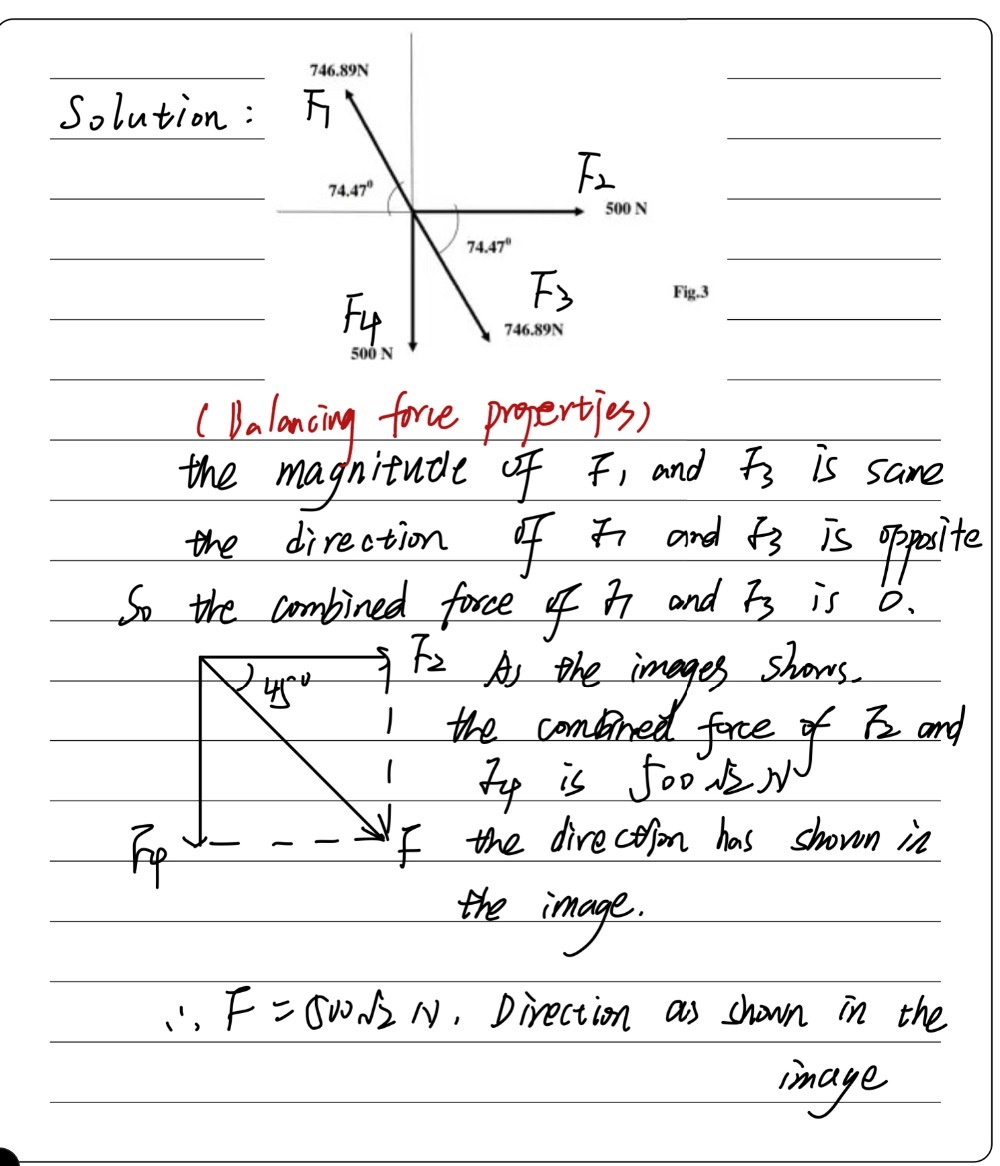 746.89N
Solution :
F1
74.47⁰
F2
500 N
74.47⁰
F3
Fig.3
F4
746.89N
500 N
(Balancing force properties)
the magnitude of F1 and F3 is same
the direction of F1 and F3 is opposite
So the combined force of F1 and F3 is 0.
F2 As the images shows.
45⁰
the combined force of F2 and
F4 is 500√2 N
F4 F the direction has shown in
the image.
∴ F = 500√2 N. Direction as shown in the
image